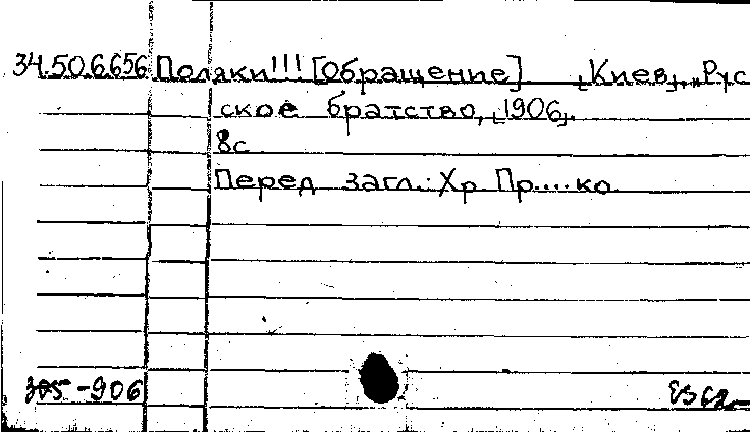 34.50.6.656 Поляки!!! [Обращение] [Киев], „Рус
ское братство, [1906].
8с
Перед загл.: Хр Пр....ко
305-906